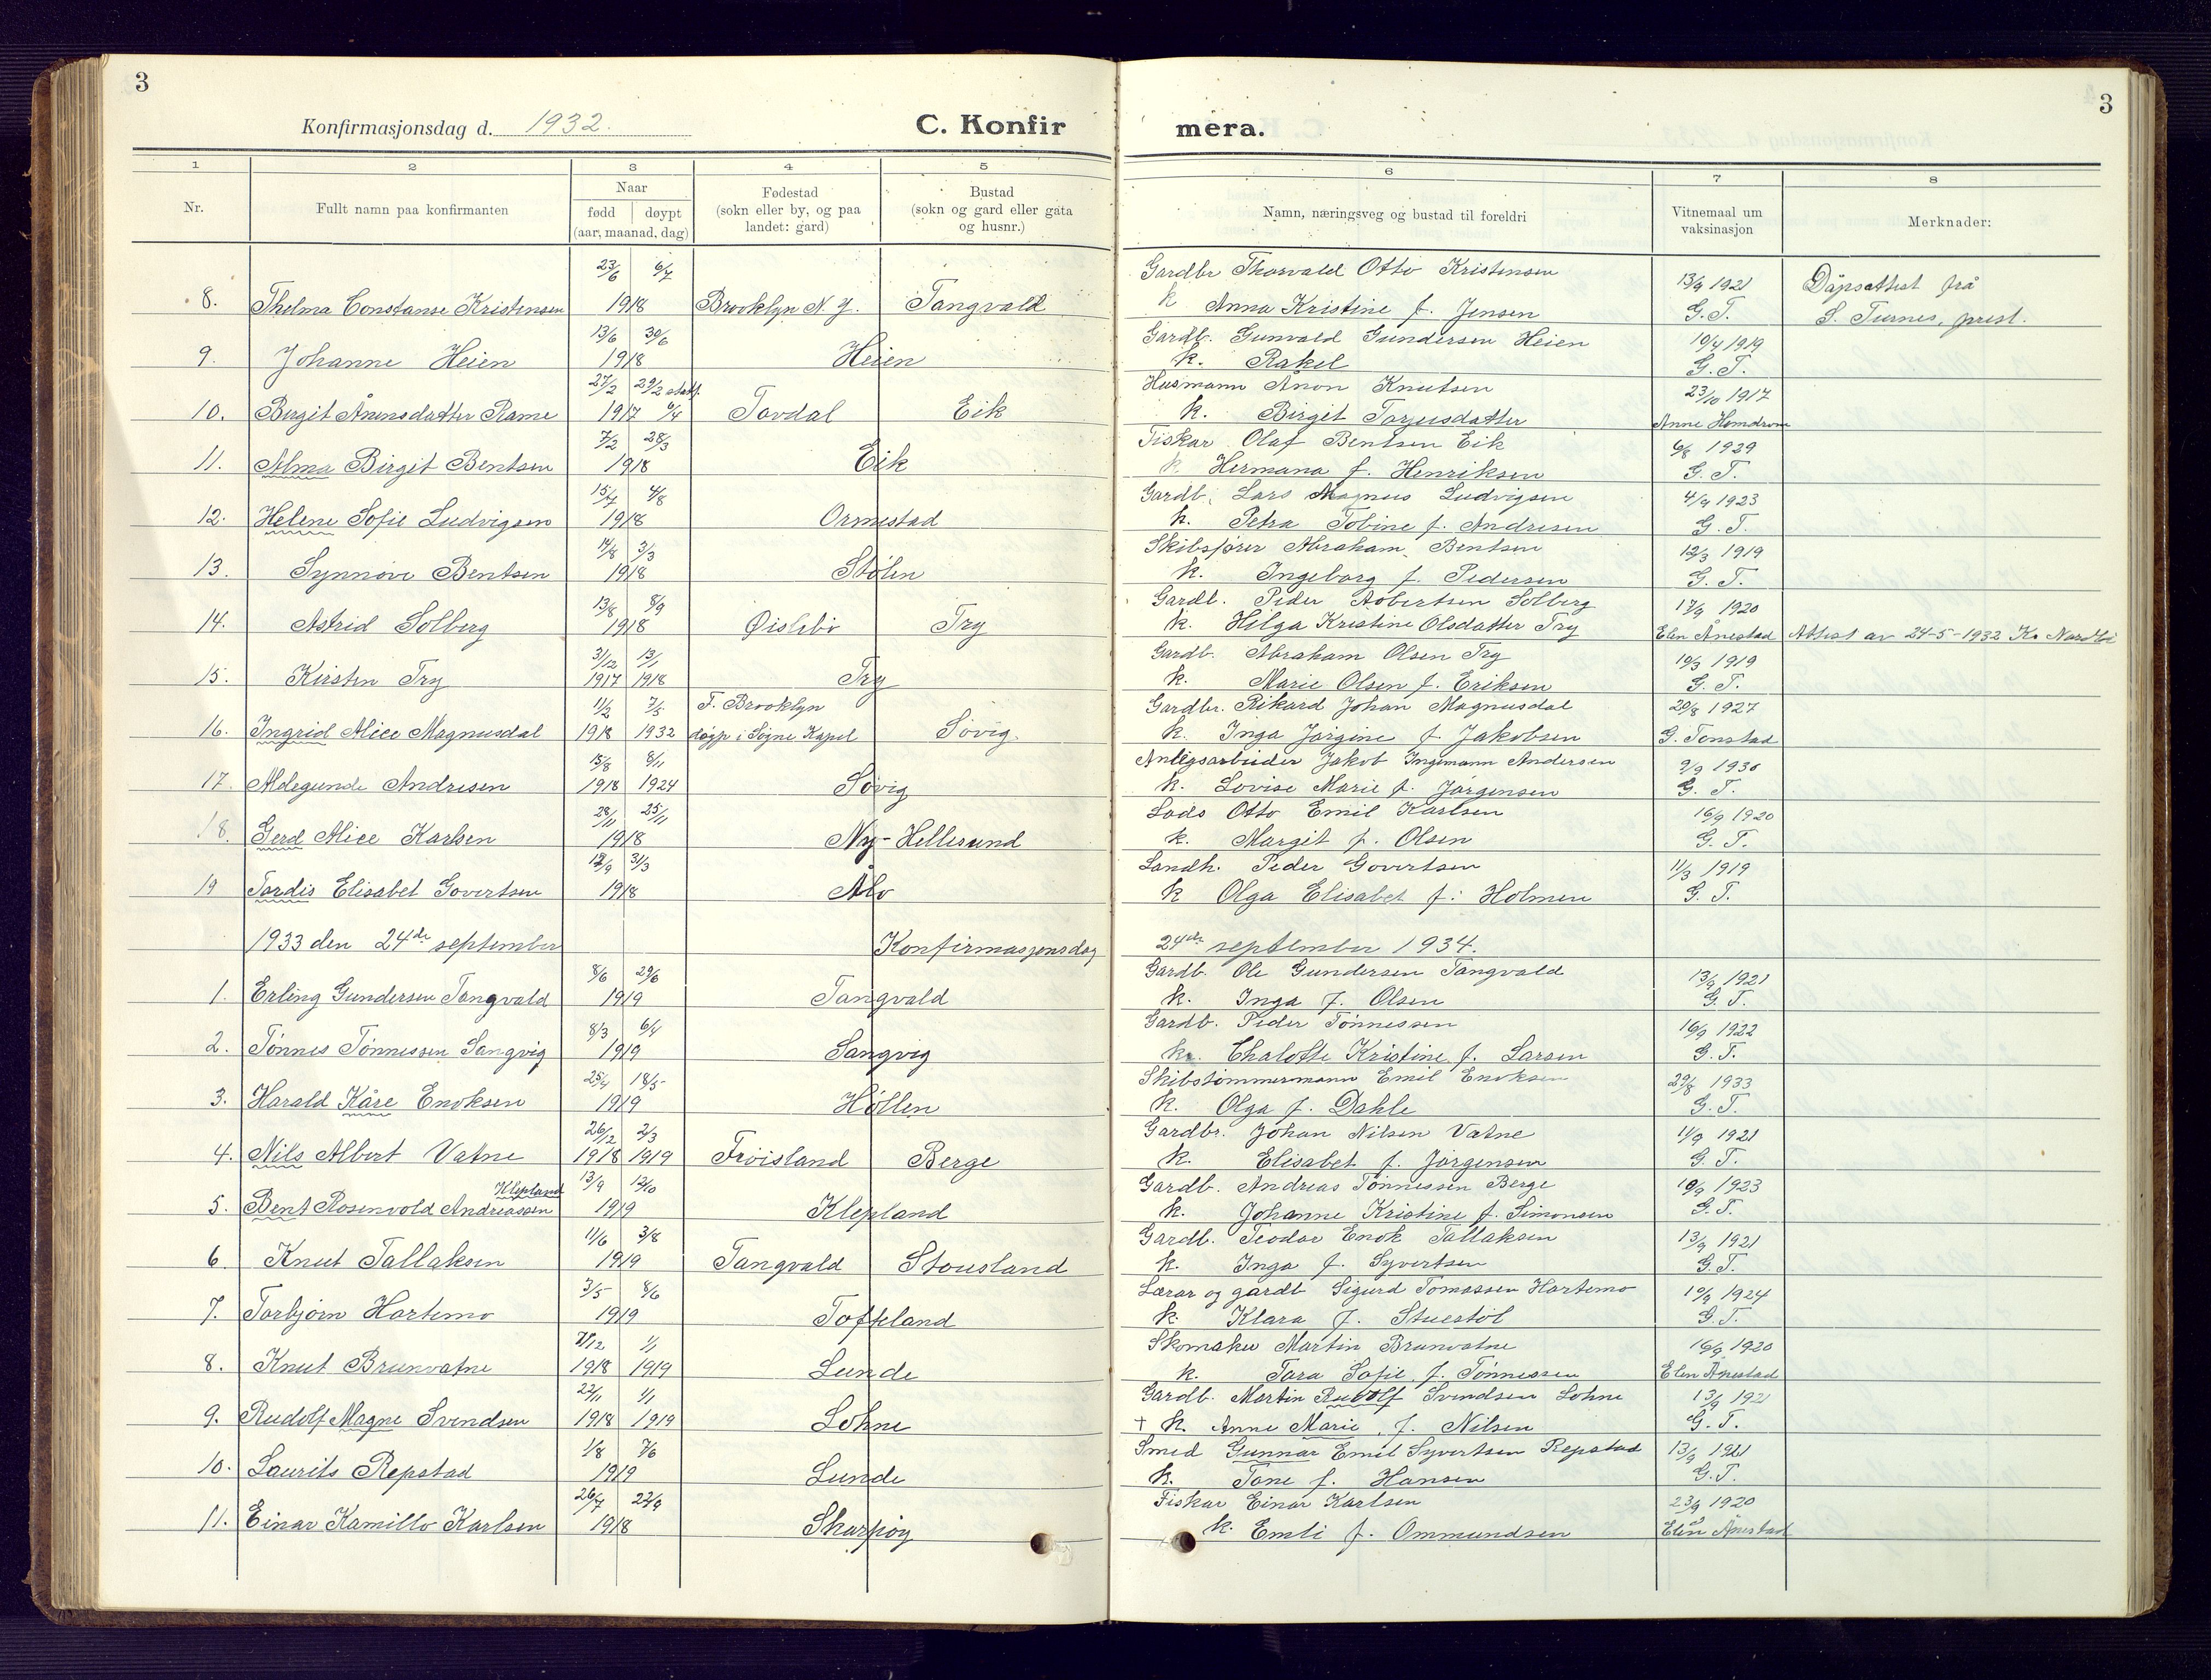 3
3
Konfirmasjonsdag d. 1932.
C. Konfir
mera.
1 2 3 4 5 6 7 8
Nr.
Fullt namn paa konfirmanten
Naar
fødd døypt
(aar, maanad, dag)
Fødestad
(sokn eller by, og paa
landet: gard)
Bustad
(sokn og gard eller gata
og husnr.)
Namn, næringsveg og bustad til foreldri
Vitnemaal um
vaksinasjon
Merknader:
23/6 6/7 Gardbr Thorvald Otto Kristensen 13/9 1921 Dåpsattest frå
8. Thelma Constanse Kristensen 1918 Brooklyn N.Y. Tangvald k Anna Kristine f. Jensen G.T. S. Turnes, prest.
13/6 30/6 Gardb. Gunvald Gundersen Heien 10/4 1919
9. Johanne Heien 1918 Heien k. Rakel G.T.
27/2 29/2 Husmann Ånon Knutsen 23/10 1917
10. Birgit Ånensdatter Rame 1917 Tovdal Eik k. Birgit Torjusdatter Anne Homdrom
7/2 28/3 Fiskar Olaf Bentsen Eik 6/8 1929
11. Alma Birgit Bentsen 1918 Eik k. Hermana f. Henriksen G.T.
15/7 4/8 Gardb. Lars Magnus Ludvigsen 4/9 1923
12. Helene Sofie Ludvigsen 1918 Ormestad k. Petra Tobine f. Andresen G.T.
14/8 3/3 Skibsfører Abraham Bentsen 12/3 1919
13. Synnøve Bentsen 1918 Stølen k. Ingeborg f. Pedersen G.T.
13/8 8/9 Gardb. Peder Robertsen Solberg 17/9 1920
14. Astrid Solberg 1918 Øislebø Try k. Helga Kristine Olsdatter Try Elen Ånestad Attest av 24-5-1932 Kr. Nordbø
31/12 13/1 Gardb. Abraham Olsen Try 10/3 1919
15. Kirsten Try 1917 1918 Try k. Marie Olsen f. Eriksen G.T.
11/2 7/5 F. Brooklyn Gardbr. Rikard Johan Magnusdal 20/8 1927
16. Ingrid Alice Magnusdal 1918 1932 døyp i Søgne Kapel Søvig. k. Inga Jørgine f. Jakobsen G. Tonstad
15/8 8/11 Anlegsarbeider Jakob Ingemann Andersen 9/9 1930
17. Aldegunde Andresen 1918 1924 Søvig k. Lovise Marie f. Jørgensen G.T.
23/11 25/11 Lods Otto Emil Karlsen 16/9 1920
18. Gerd Alice Karlsen 1918 Ny-Hellesund k. Margit f. Olsen G.T.
12/9 31/3 Landh. Peder Govertsen 11/3 1919
19 Tordis Elisabet Govertsen 1918 Alo k Olga Elisabet f. Holmen G.T.
1933 den 24de september Konfirmasjonsdag 24de september 1934.
8/6 29/6 Gardb. Ole Gundersen Tangvald 13/9 1921
1. Erling Gundersen Tangvald 1919 Tangvald k. Inga f. Olsen G.T.
8/3 6/4 Gardb. Peder Tønnessen 16/9 1922
2. Tønnes Tønnessen Sangvig 1919 Sangvig k. Chalotte Kristine f. Larsen G.T.
25/4 18/5 Skibstømmermann Emil Enoksen 29/8 1933
3. Harald Kåre Enoksen 1919 Høllen k. Olga f. Dahle G.T.
26/12 2/3 Gardbr. Johan Nilsen Vatne 11/9 1921
4. Nils Albert Vatne 1918 1919 Frøisland Berge k. Elisabet f. Jørgensen G.T.
Klepland 13/9 12/10 Gardb. Andreas Tønnessen Berge 10/9 1923
5. Bent Rosenvold Andreassen 1919 Klepland k. Johanne Kristine f. Simonsen G.T.
11/6 3/8 Gardb. Teodor Enok Tallaksen 13/9 1921
6. Knut Tallaksen 1919 Tangvald Stousland k. Inga f. Syvertsen G.T.
3/5 8/6 Lærar og gardb Sigurd Tomassen Hortemo 10/9 1924
7. Torbjørn Hortemo 1919 Tofteland k. Klara f. Stuestøl G.T.
1/1 Skomaker Martin Brunvatne 16/9 1920
8. Knut Brunvatne 1918 1919 Lunde k. Tora Sofie f. Tønnessen Elen Ånestad
22/11 1/1 Gardb. Martin Rudolf Svendsen Lohne 13/9 1921
9. Rudolf Magne Svendsen 1918 1919 Lohne † k. Anne Marie f. Nilsen G.T.
1/8 7/6 Smed Gunnar Emil Syvertsen Repstad 13/9 1921
10. Laurits Repstad 1919 Lunde k. Tone f. Hansen G.T.
26/7 22/9 Fiskar Einar Karlsen 23/9 1920
11. Einar Kamillo Karlsen 1918 Skarpøy k. Emli f. Ommundsen Elen Ånestad